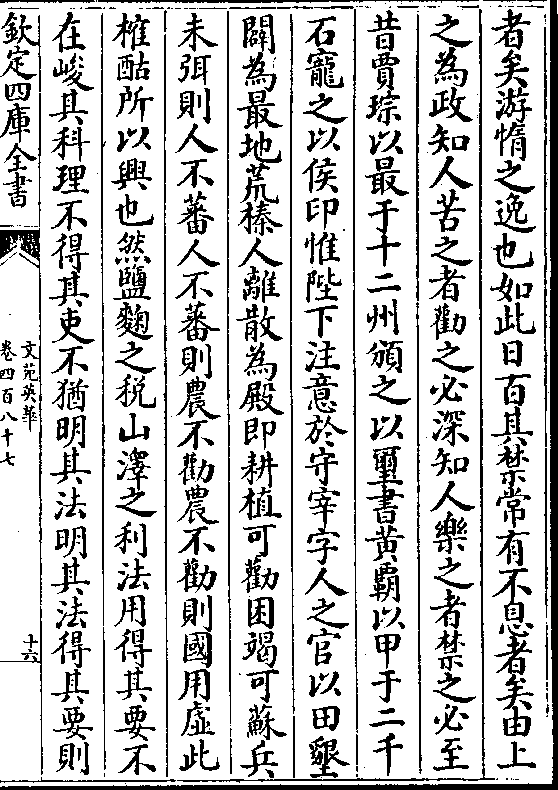 者矣游惰之逸也如此日百其禁常有不息者矣由上
之為政知人苦之者勸之必深知人樂之者禁之必至
昔賈琮以最于十二州頒之以璽書黃霸以甲于二千
石寵之以侯印惟陛下注意於守宰字人之官以田墾
闢為最地荒榛人離散為殿即耕植可勸困竭可蘇兵
未弭則人不蕃人不蕃則農不勸農不勸則國用虛此
榷酤所以興也然鹽麴之税山澤之利法用得其要不
在峻其科理不得其吏不猶明其法明其法得其要則
欽定四庫全書
文苑英華
卷四百八十七
十六